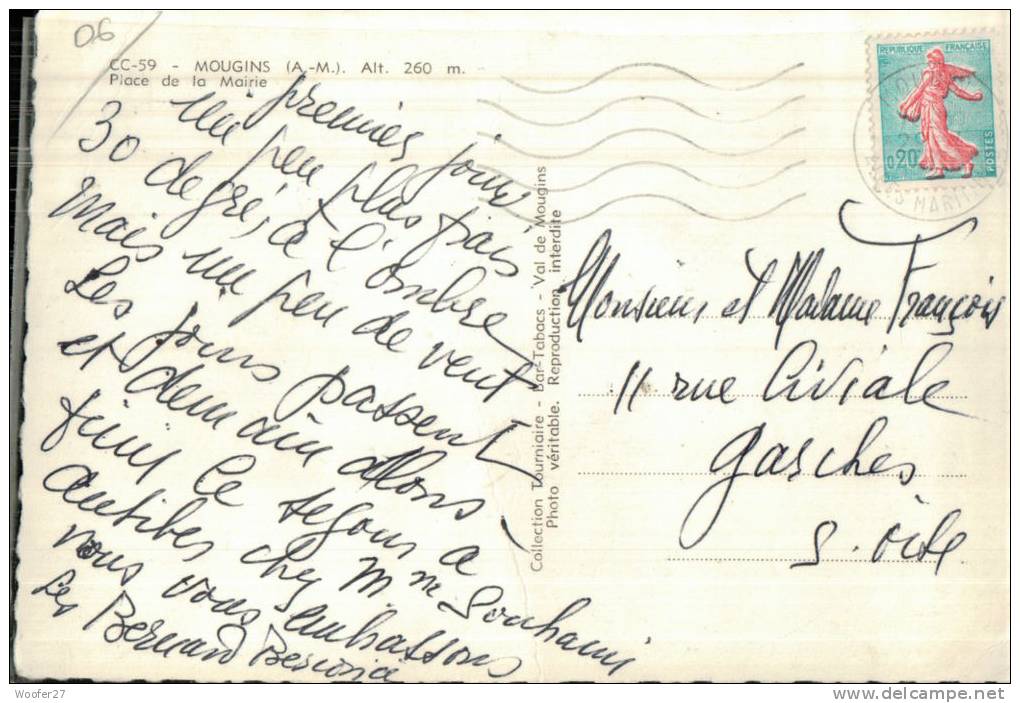 06
CC-59 - MOUGINS (A.-M.). Alt. 260 m.
Place de la Mairie
premiers jours
un peu plus frais
30 degrés à l'ombre
mais un peu de vent
Les jours passent
et demain allons
finir le segour a
antibes chez Mme
nous vous embrassons
Les Bernard
Collection Tourniaire - Bar-Tabacs - Val de Mougins
Photo véritable. Reproduction interdite
REPUBLIQUE FRANÇAISE
0,20
POSTES
Monsieur et Madame François
11 rue Civiale
Garches
S. oise
Woofer27
http://www.delcampe.net